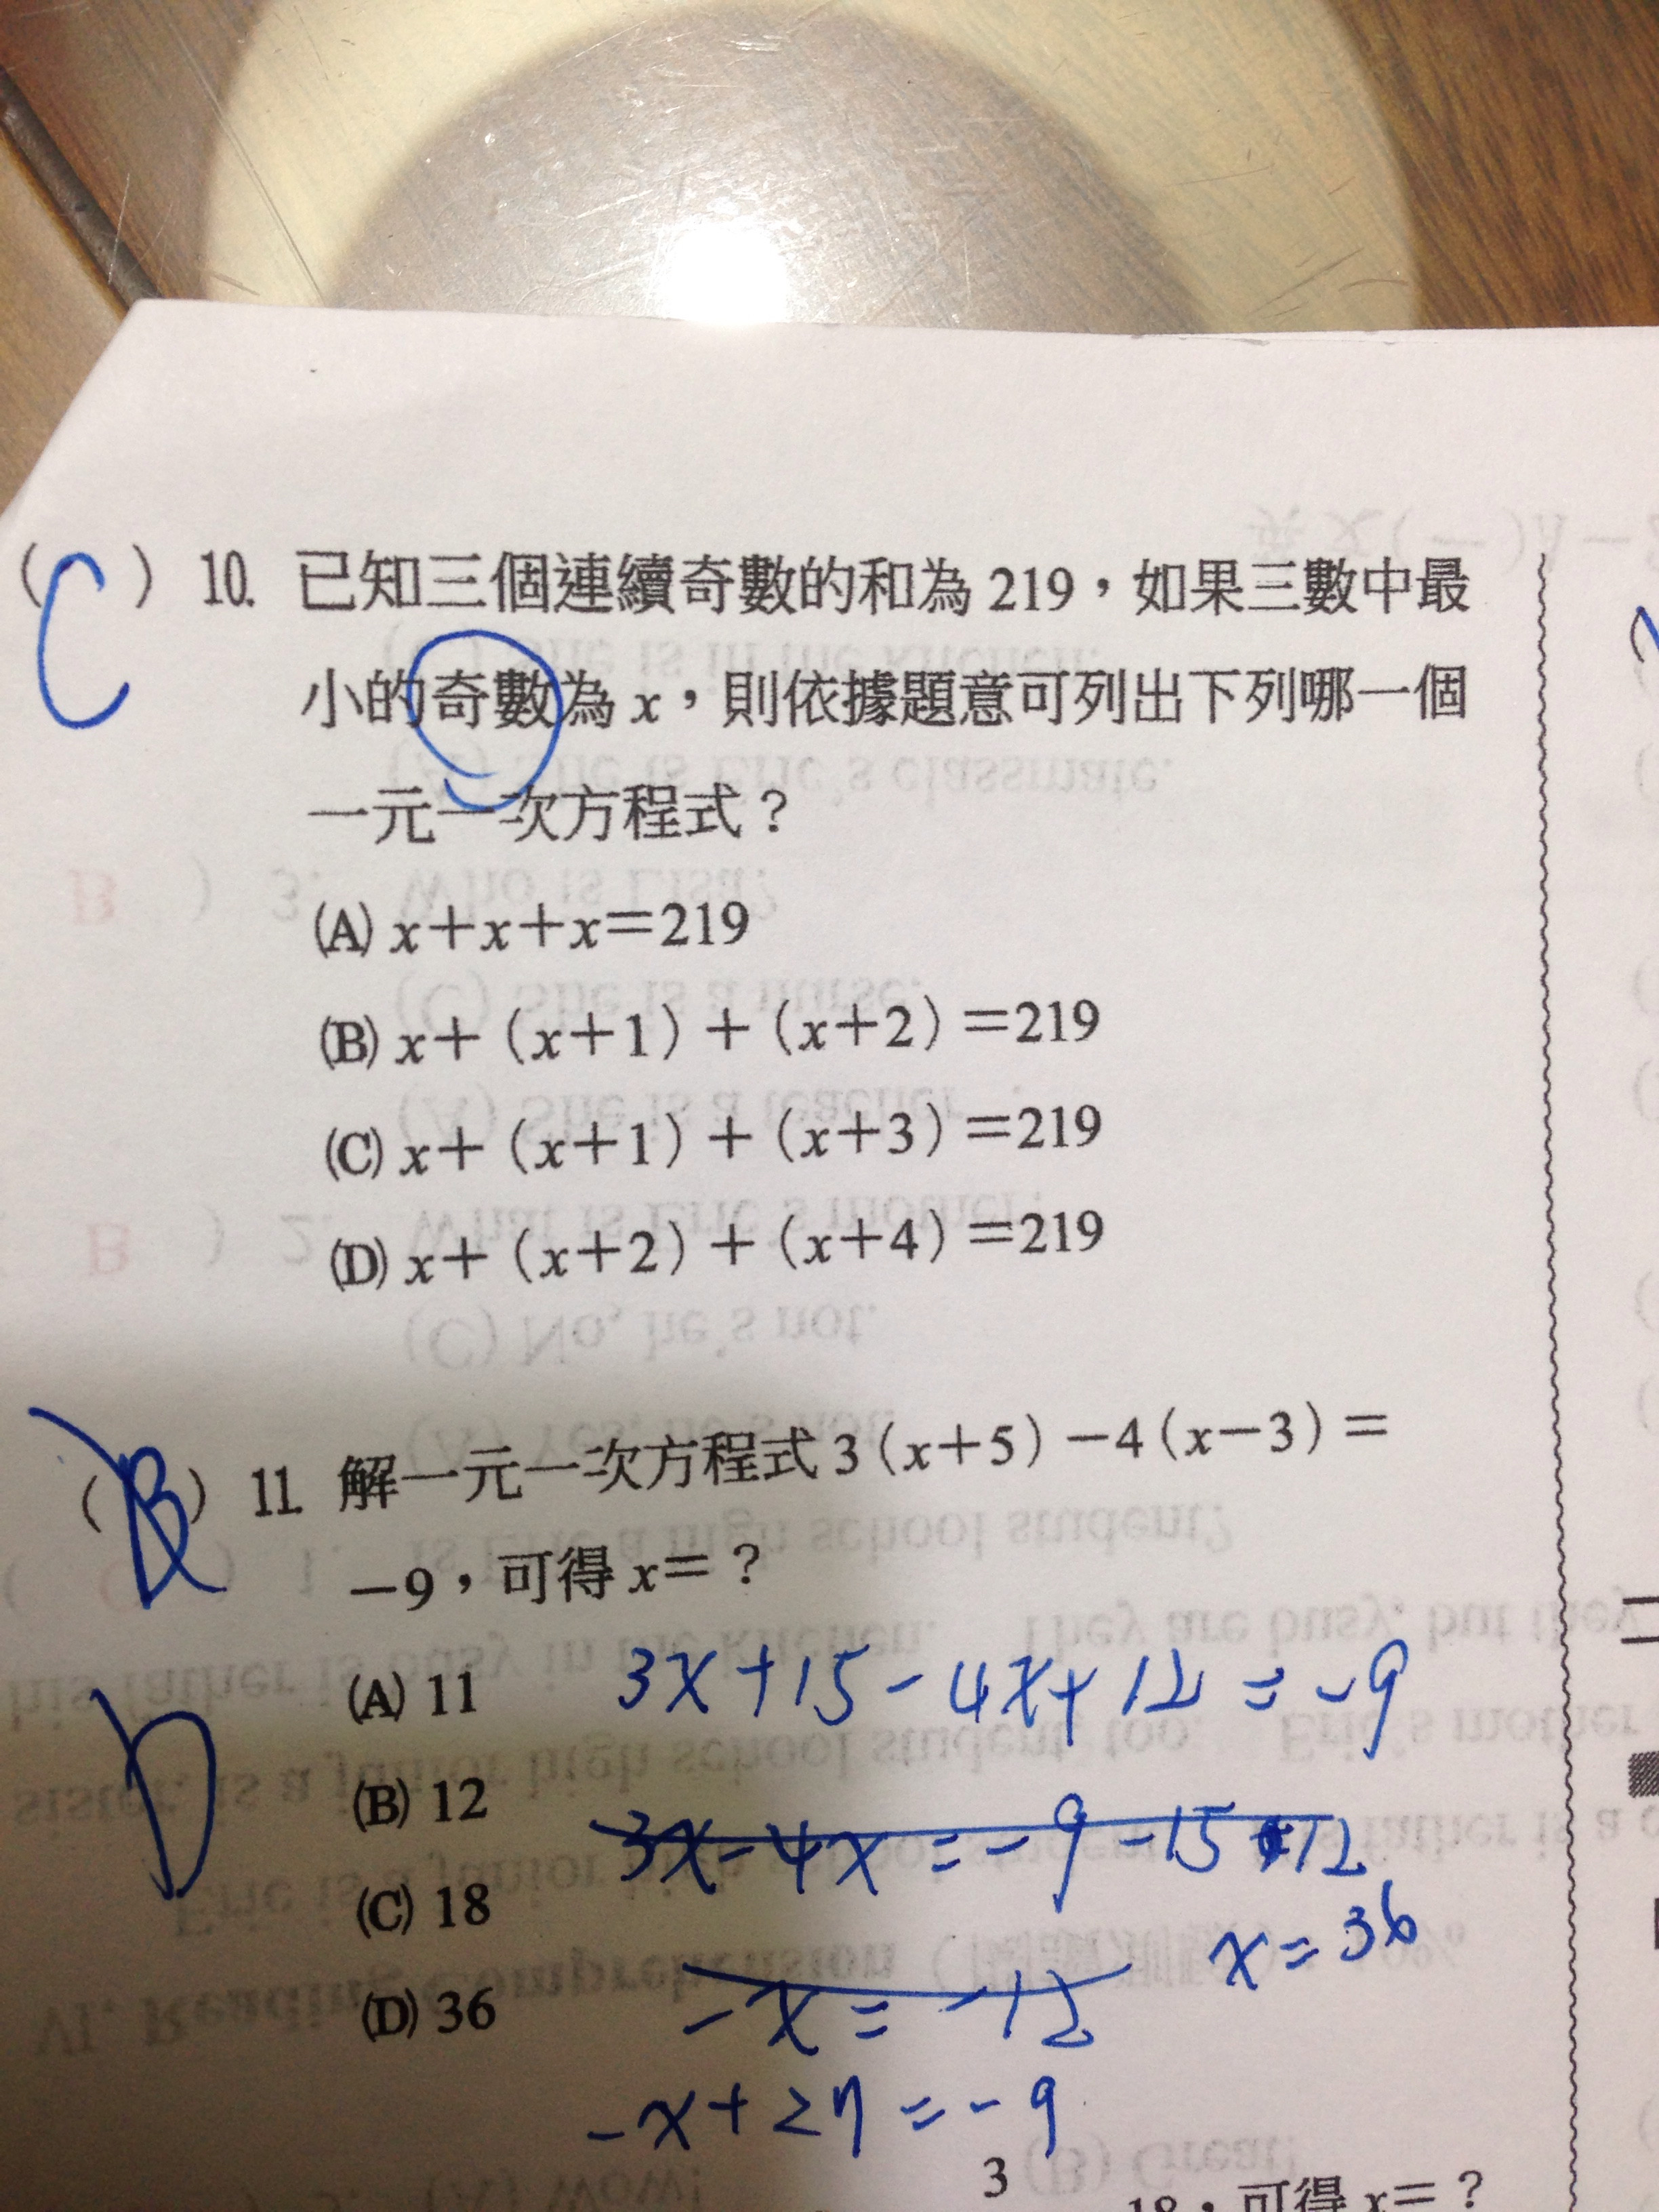 (C) 10. 已知三個連續奇數的和為219，如果三數中最
小的奇數為x，則依據題意可列出下列哪一個
一元一次方程式？
(A) x＋x＋x＝219
(B) x＋（x＋1）＋（x＋2）＝219
(C) x＋（x＋1）＋（x＋3）＝219
(D) x＋（x＋2）＋（x＋4）＝219
(B) 11. 解一元一次方程式3（x＋5）－4（x－3）＝
－9，可得x＝？
D
(A) 11
3x+15-4x+12=-9
(B) 12
3x-4x=-9-15+12
(C) 18
x=36
(D) 36
-x=-12
-x+27=-9
3
18，可得x＝？